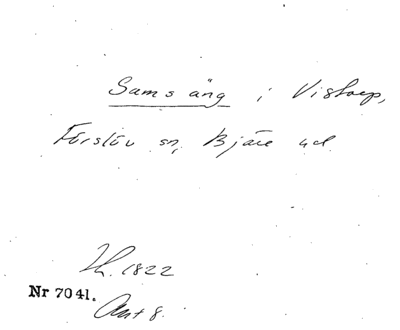 Sams äng i Vistorp,
Förslöv sn, Bjäre hd.
Lh. 1822
Nr 7041.
Akt 8.